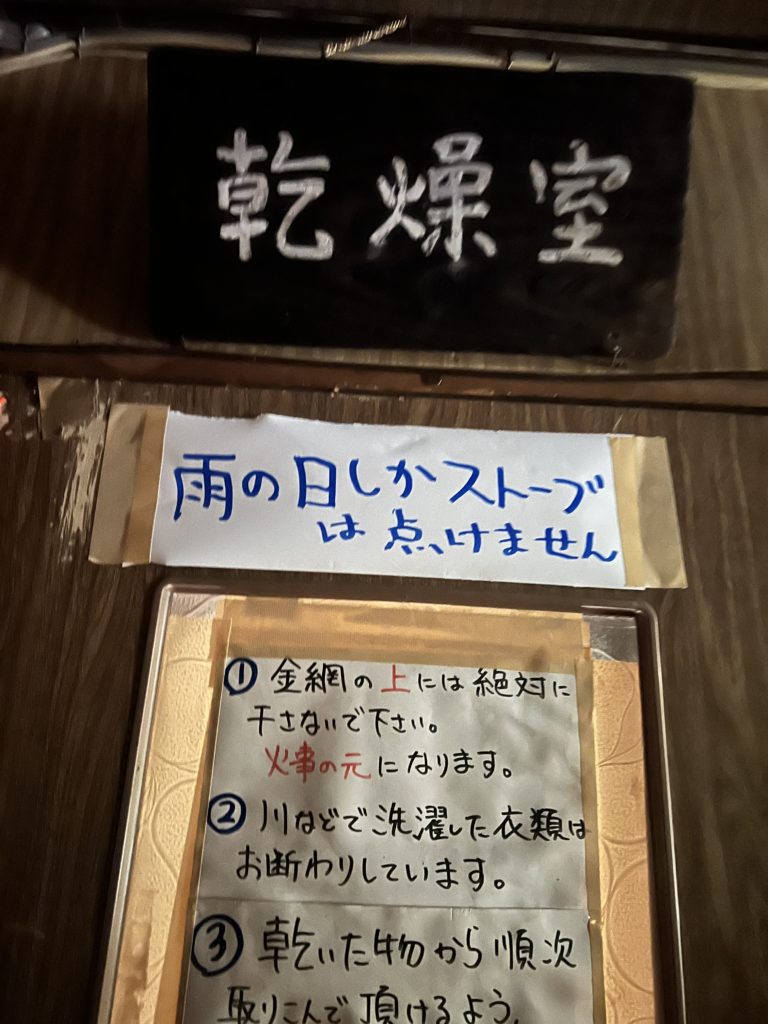 乾燥室
雨の日しかストーブ
は点けません
① 金網の上には絶対に
干さないで下さい。
火事の元になります。
② 川などで洗濯した衣類は
お断わりしています。
③ 乾いた物から順次
取りこんで頂けるよう、